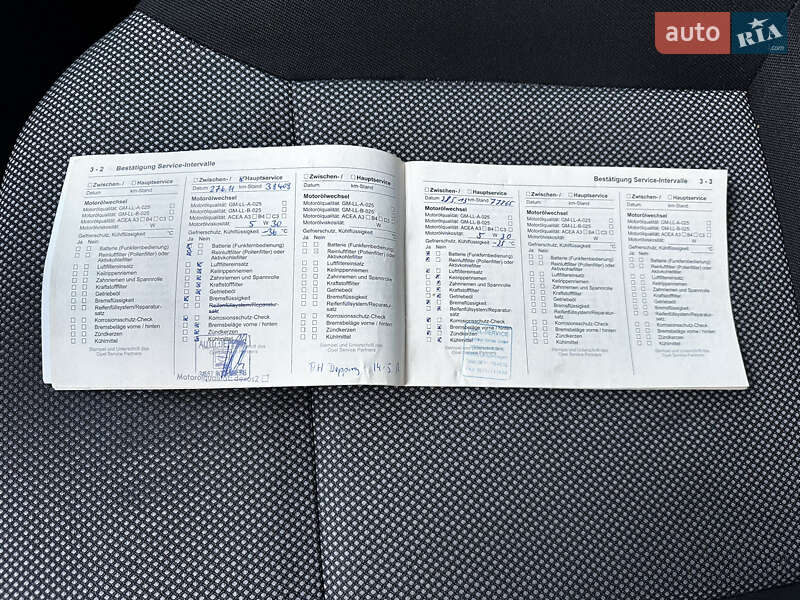 auto RIA
.com
3 - 2 Bestätigung Service-Intervalle
Zwischen- / Hauptservice
Datum km-Stand
Motorölwechsel
Motorölqualität: GM-LL-A-025
Motorölqualität: GM-LL-B-025
Motorölqualität: ACEA A3 B4 C3
Motorölviskosität: W
Gefrierschutz, Kühlflüssigkeit: °C
Ja Nein
Batterie (Funkfernbedienung)
Reinluftfilter (Pollenfilter) oder
Aktivkohlefilter
Luftfiltereinsatz
Keilrippenriemen
Zahnriemen und Spannrolle
Kraftstofffilter
Getriebeöl
Bremsflüssigkeit
Reifenfüllsystem/Reparatur-
satz
Korrosionsschutz-Check
Bremsbeläge vorne / hinten
Zündkerzen
Kühlmittel
Stempel und Unterschrift des
Opel Service Partners
Zwischen- / Hauptservice
Datum km-Stand
Motorölwechsel
Motorölqualität: GM-LL-A-025
Motorölqualität: GM-LL-B-025
Motorölqualität: ACEA A3 B4 C3
Motorölviskosität: 5 W 30
Gefrierschutz, Kühlflüssigkeit: -36 °C
Ja Nein
Batterie (Funkfernbedienung)
Reinluftfilter (Pollenfilter) oder
Aktivkohlefilter
Luftfiltereinsatz
Keilrippenriemen
Zahnriemen und Spannrolle
Kraftstofffilter
Getriebeöl
Bremsflüssigkeit
Reifenfüllsystem/Reparatur-
satz
Korrosionsschutz-Check
Bremsbeläge vorne / hinten
Zündkerzen
Kühlmittel
Motorölqualität dexos2
Zwischen- / Hauptservice
Datum km-Stand
Motorölwechsel
Motorölqualität: GM-LL-A-025
Motorölqualität: GM-LL-B-025
Motorölqualität: ACEA A3 B4 C3
Motorölviskosität: W
Gefrierschutz, Kühlflüssigkeit: °C
Ja Nein
Batterie (Funkfernbedienung)
Reinluftfilter (Pollenfilter) oder
Aktivkohlefilter
Luftfiltereinsatz
Keilrippenriemen
Zahnriemen und Spannrolle
Kraftstofffilter
Getriebeöl
Bremsflüssigkeit
Reifenfüllsystem/Reparatur-
satz
Korrosionsschutz-Check
Bremsbeläge vorne / hinten
Zündkerzen
Kühlmittel
Stempel und Unterschrift des
Opel Service Partners
Bestätigung Service-Intervalle 3 - 3
Zwischen- / Hauptservice
Datum km-Stand
Motorölwechsel
Motorölqualität: GM-LL-A-025
Motorölqualität: GM-LL-B-025
Motorölqualität: ACEA A3 B4 C3
Motorölviskosität: 5 W 30
Gefrierschutz, Kühlflüssigkeit: °C
Ja Nein
Batterie (Funkfernbedienung)
Reinluftfilter (Pollenfilter) oder
Aktivkohlefilter
Luftfiltereinsatz
Keilrippenriemen
Zahnriemen und Spannrolle
Kraftstofffilter
Getriebeöl
Bremsflüssigkeit
Reifenfüllsystem/Reparatur-
satz
Korrosionsschutz-Check
Bremsbeläge vorne / hinten
Zündkerzen
Kühlmittel
Zwischen- / Hauptservice
Datum km-Stand
Motorölwechsel
Motorölqualität: GM-LL-A-025
Motorölqualität: GM-LL-B-025
Motorölqualität: ACEA A3 B4 C3
Motorölviskosität: W
Gefrierschutz, Kühlflüssigkeit: °C
Ja Nein
Batterie (Funkfernbedienung)
Reinluftfilter (Pollenfilter) oder
Aktivkohlefilter
Luftfiltereinsatz
Keilrippenriemen
Zahnriemen und Spannrolle
Kraftstofffilter
Getriebeöl
Bremsflüssigkeit
Reifenfüllsystem/Reparatur-
satz
Korrosionsschutz-Check
Bremsbeläge vorne / hinten
Zündkerzen
Kühlmittel
Stempel und Unterschrift des
Opel Service Partners
Zwischen- / Hauptservice
Datum km-Stand
Motorölwechsel
Motorölqualität: GM-LL-A-025
Motorölqualität: GM-LL-B-025
Motorölqualität: ACEA A3 B4 C3
Motorölviskosität: W
Gefrierschutz, Kühlflüssigkeit: °C
Ja Nein
Batterie (Funkfernbedienung)
Reinluftfilter (Pollenfilter) oder
Aktivkohlefilter
Luftfiltereinsatz
Keilrippenriemen
Zahnriemen und Spannrolle
Kraftstofffilter
Getriebeöl
Bremsflüssigkeit
Reifenfüllsystem/Reparatur-
satz
Korrosionsschutz-Check
Bremsbeläge vorne / hinten
Zündkerzen
Kühlmittel
Stempel und Unterschrift des
Opel Service Partners